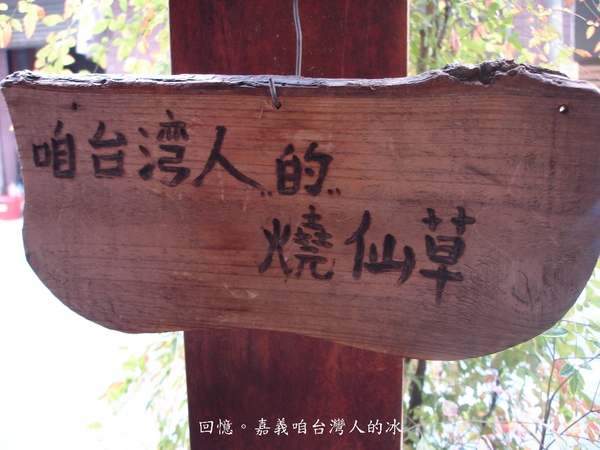 咱台灣人的
燒仙草
回憶。嘉義咱台灣人的冰